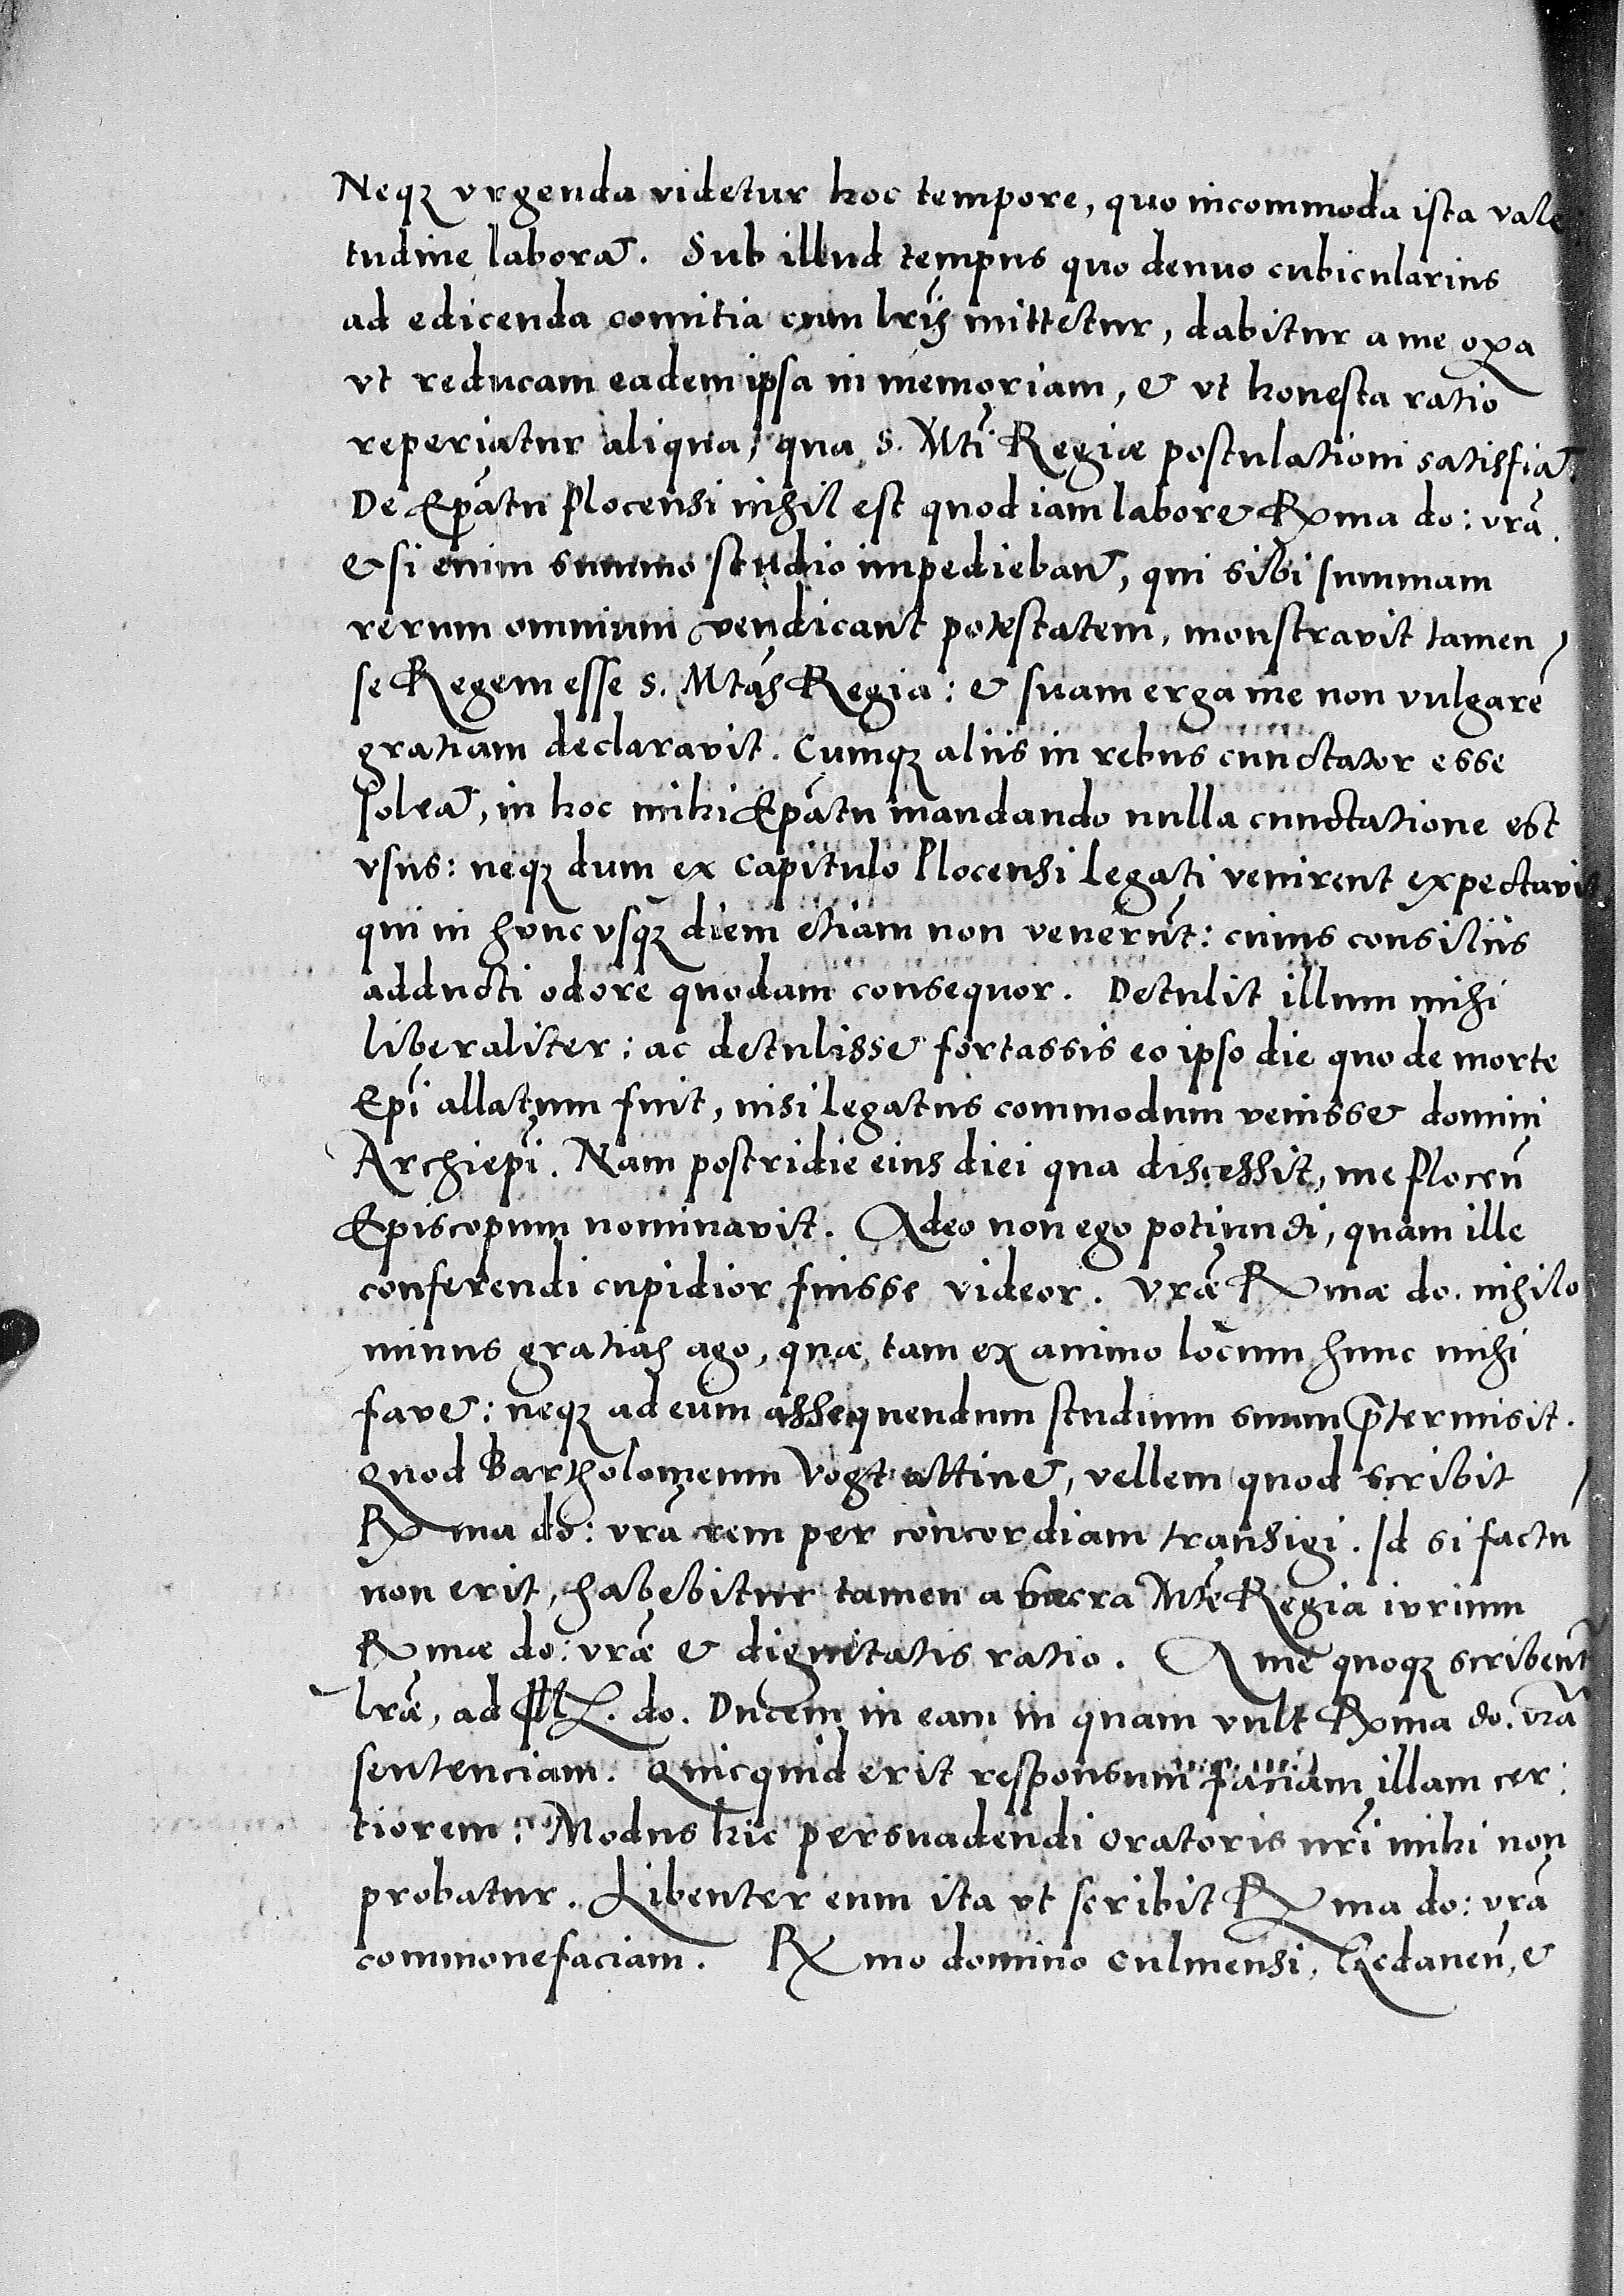 Neqꝫ vrgenda videtur hoc tempore, quo incommoda ista vale
tudine laborat. Sub illud tempus quo denuo cubicularius
ad edicenda comitia cum lr̃is mittetur, dabitur a me oꝑa
vt reducam eadem ipsa in memoriam, & vt honesta ratio
reperiatur aliqua, qua S. Mti Regiæ postulationi satisfiat.
De Ep̃atu Plocensi nihil est quod iam laboret Rx̃ma do: vr̃a.
Etsi enim summo studio impediebant, qui sibi summam
rerum omnium vendicant potestatem, monstravit tamen
se Regem esse S. Mtas Regia: & suam erga me non vulgarẽ
gratiam declaravit. Cumqꝫ aliis in rebus cunctator esse
soleat, in hoc mihi Ep̃atu mandando nulla cunctatione est
vsus: neqꝫ dum ex Capitulo Plocensi legati venirent expectavit
qui in hunc vsqꝫ diem etiam non venerũt: cuius consiliis
adducti odore quodam consequor. Detulit illum mihi
liberaliter: ac detulisset fortassis eo ipso die quo de morte
Ep̃i allatum fuit, nisi legatus commodum venisset domini
Archiep̃i. Nam postridie eius diei qua discessit, me Plocen̄
Episcopum nominavit. Adeo non ego potiundi, quam ille
conferendi cupidior fuisse videor. Vr̃æ Rx̃mæ do. nihilo
minus gratias ago, quæ tam ex animo locum hunc mihi
favet: neqꝫ ad eum assequendum studium suum p̃termisit.
Quod Bartholomeum Vogt attinet, vellem quod scribit
Rx̃ma do: vr̃a rem per concordiam transigi. Id si factũ
non erit, habebitur tamen a sacra Mte Regia iurium
Rx̃mæ do: vr̃æ & dignitatis ratio. A me quoqꝫ scribentur
lr̃æ, ad Ill. do. Ducem in eam in quam vult Rx̃ma do. vr̃a
sentenciam. Quicquid erit responsum faciam illam cer:
tiorem. Modus hic persuadendi oratoris nr̃i mihi non
probatur. Libenter eum ita vt scribit Rx̃ma do: vr̃a
commonefaciam. Rx̃mo domino Culmensi, Gedanen̄, &